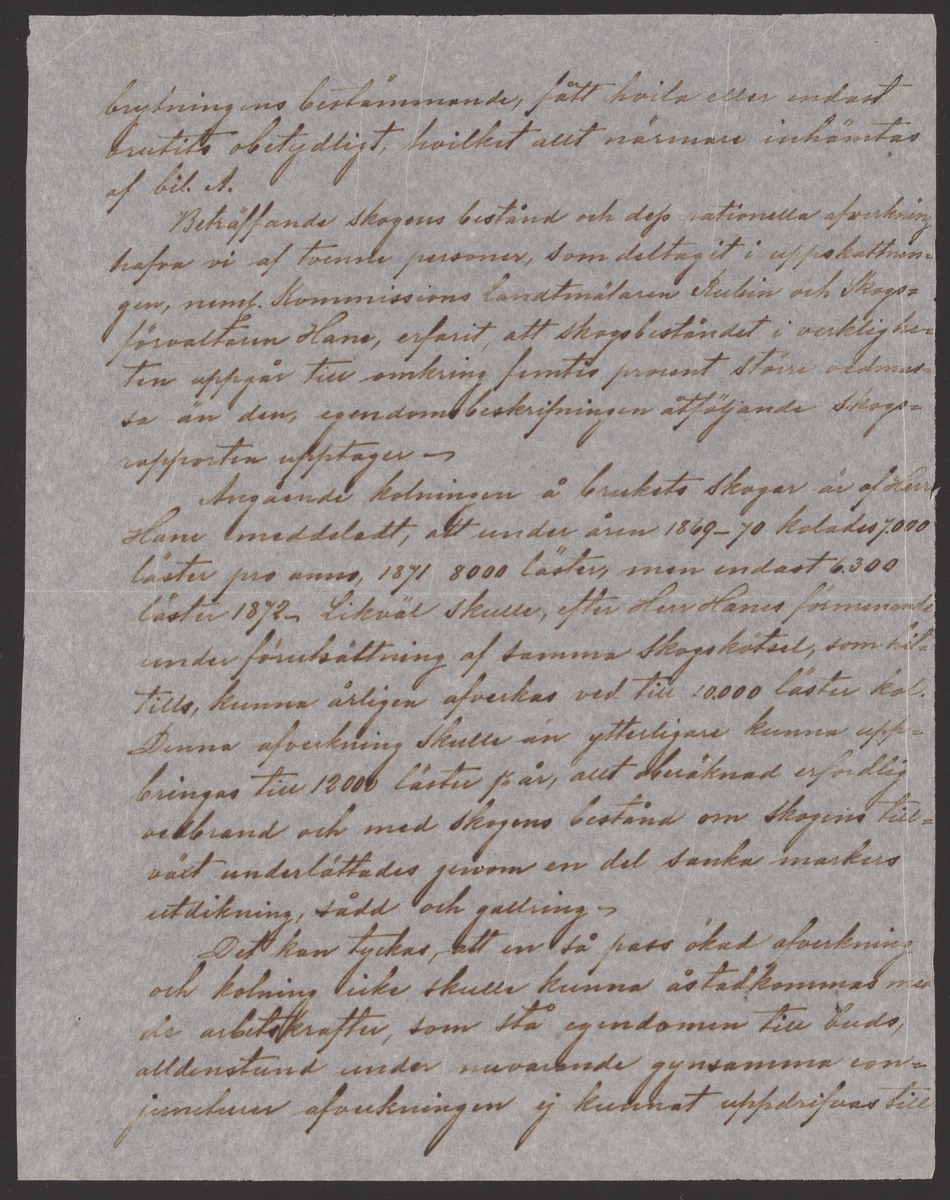 brytningens bestämmande, fått hvila eller endast
brutits obetydligt, hvilket allt närmare inhämtas
af bil. A.
Beträffande skogens bestånd och dess rationella afverkning
hafva vi af tvenne personer, som deltagit i uppskattnin=
gen, neml. Kommissions Landtmätaren Rubin och Skogs=
förvaltaren Hane, erfarit, att skogsbeståndet i verklighe=
ten uppgår till omkring femtio procent större vedmas=
sa än den, egendomsbeskrifningen åtföljande skogs=
rapporten upptager –
Angående kolningen å brukets skogar är af Herr
Hane meddeladt, att under åren 1869–70 kolades 7.000
läster pro anno, 1871 8000 läster, men endast 6.300
läster 1872 – Likväl skulle, efter Herr Hanes förmenande
under förutsättning af samma skogskötsel, som hit=
tills, kunna årligen afverkas ved till 10.000 läster kol.
Denna afverkning skulle än ytterligare kunna upp=
bringas till 12000 läster pr år, allt oberäknad erforderlig
vedbrand och med skogens bestånd om skogens till=
växt underlättades genom en del sanka markers
utdikning, sådd och gallring –
Det kan tyckas, att en så pass ökad afverkning
och kolning icke skulle kunna åstadkommas med
de arbetskrafter, som stå egendomen till buds,
alldenstund under nuvarande gynsamma con=
juncturer afverkningen ej kunnat uppdrifvas till